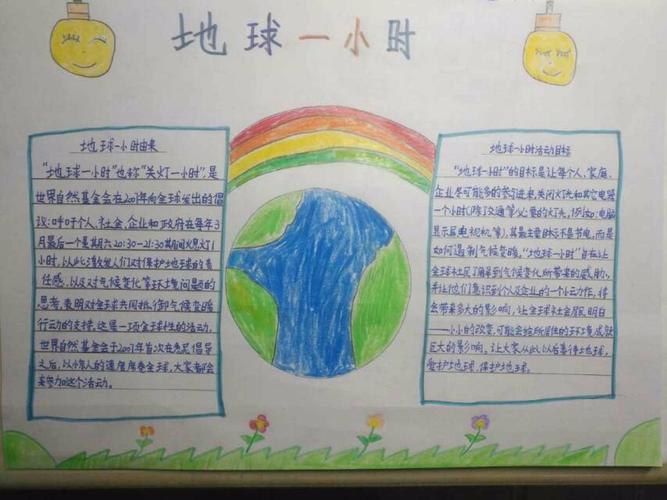 地球一小时
地球一小时由来
“地球一小时”也称“关灯一小时”,是
世界自然基金会在2007年向全球发出的倡
议:呼吁个人、社会、企业和政府在每年3
月最后一个星期六20:30-21:30期间熄灯1
小时,以此激发人们对保护地球的责
任感,以及对气候变化等环境问题的
思考,表明对全球共同抵御气候变暖
行动的支持,这是一项全球性的活动,
世界自然基金会于2007年首次在悉尼倡导
之后,以惊人的速度席卷全球,大家都会
来参加这个活动。
地球一小时活动目标
“地球一小时”的目标是让每个人、家庭、
企业尽可能多的参与进来,关闭灯光和其它电器
一个小时(除交通等必需的灯光,例如:电脑
显示屏电视机等),其最主要目标还不是节电,而是
如何遏制气候变暖,“地球一小时”旨在让
全球社区了解到气候变化所带来的威胁,
并让他们意识到个人及企业的一个小动作,将
会带来多大的影响,让全球社会居民明白
一小小的改变,可能会给所居住的环境造成
巨大的影响。让大家从此以后善待地球,
爱护地球,保护地球。